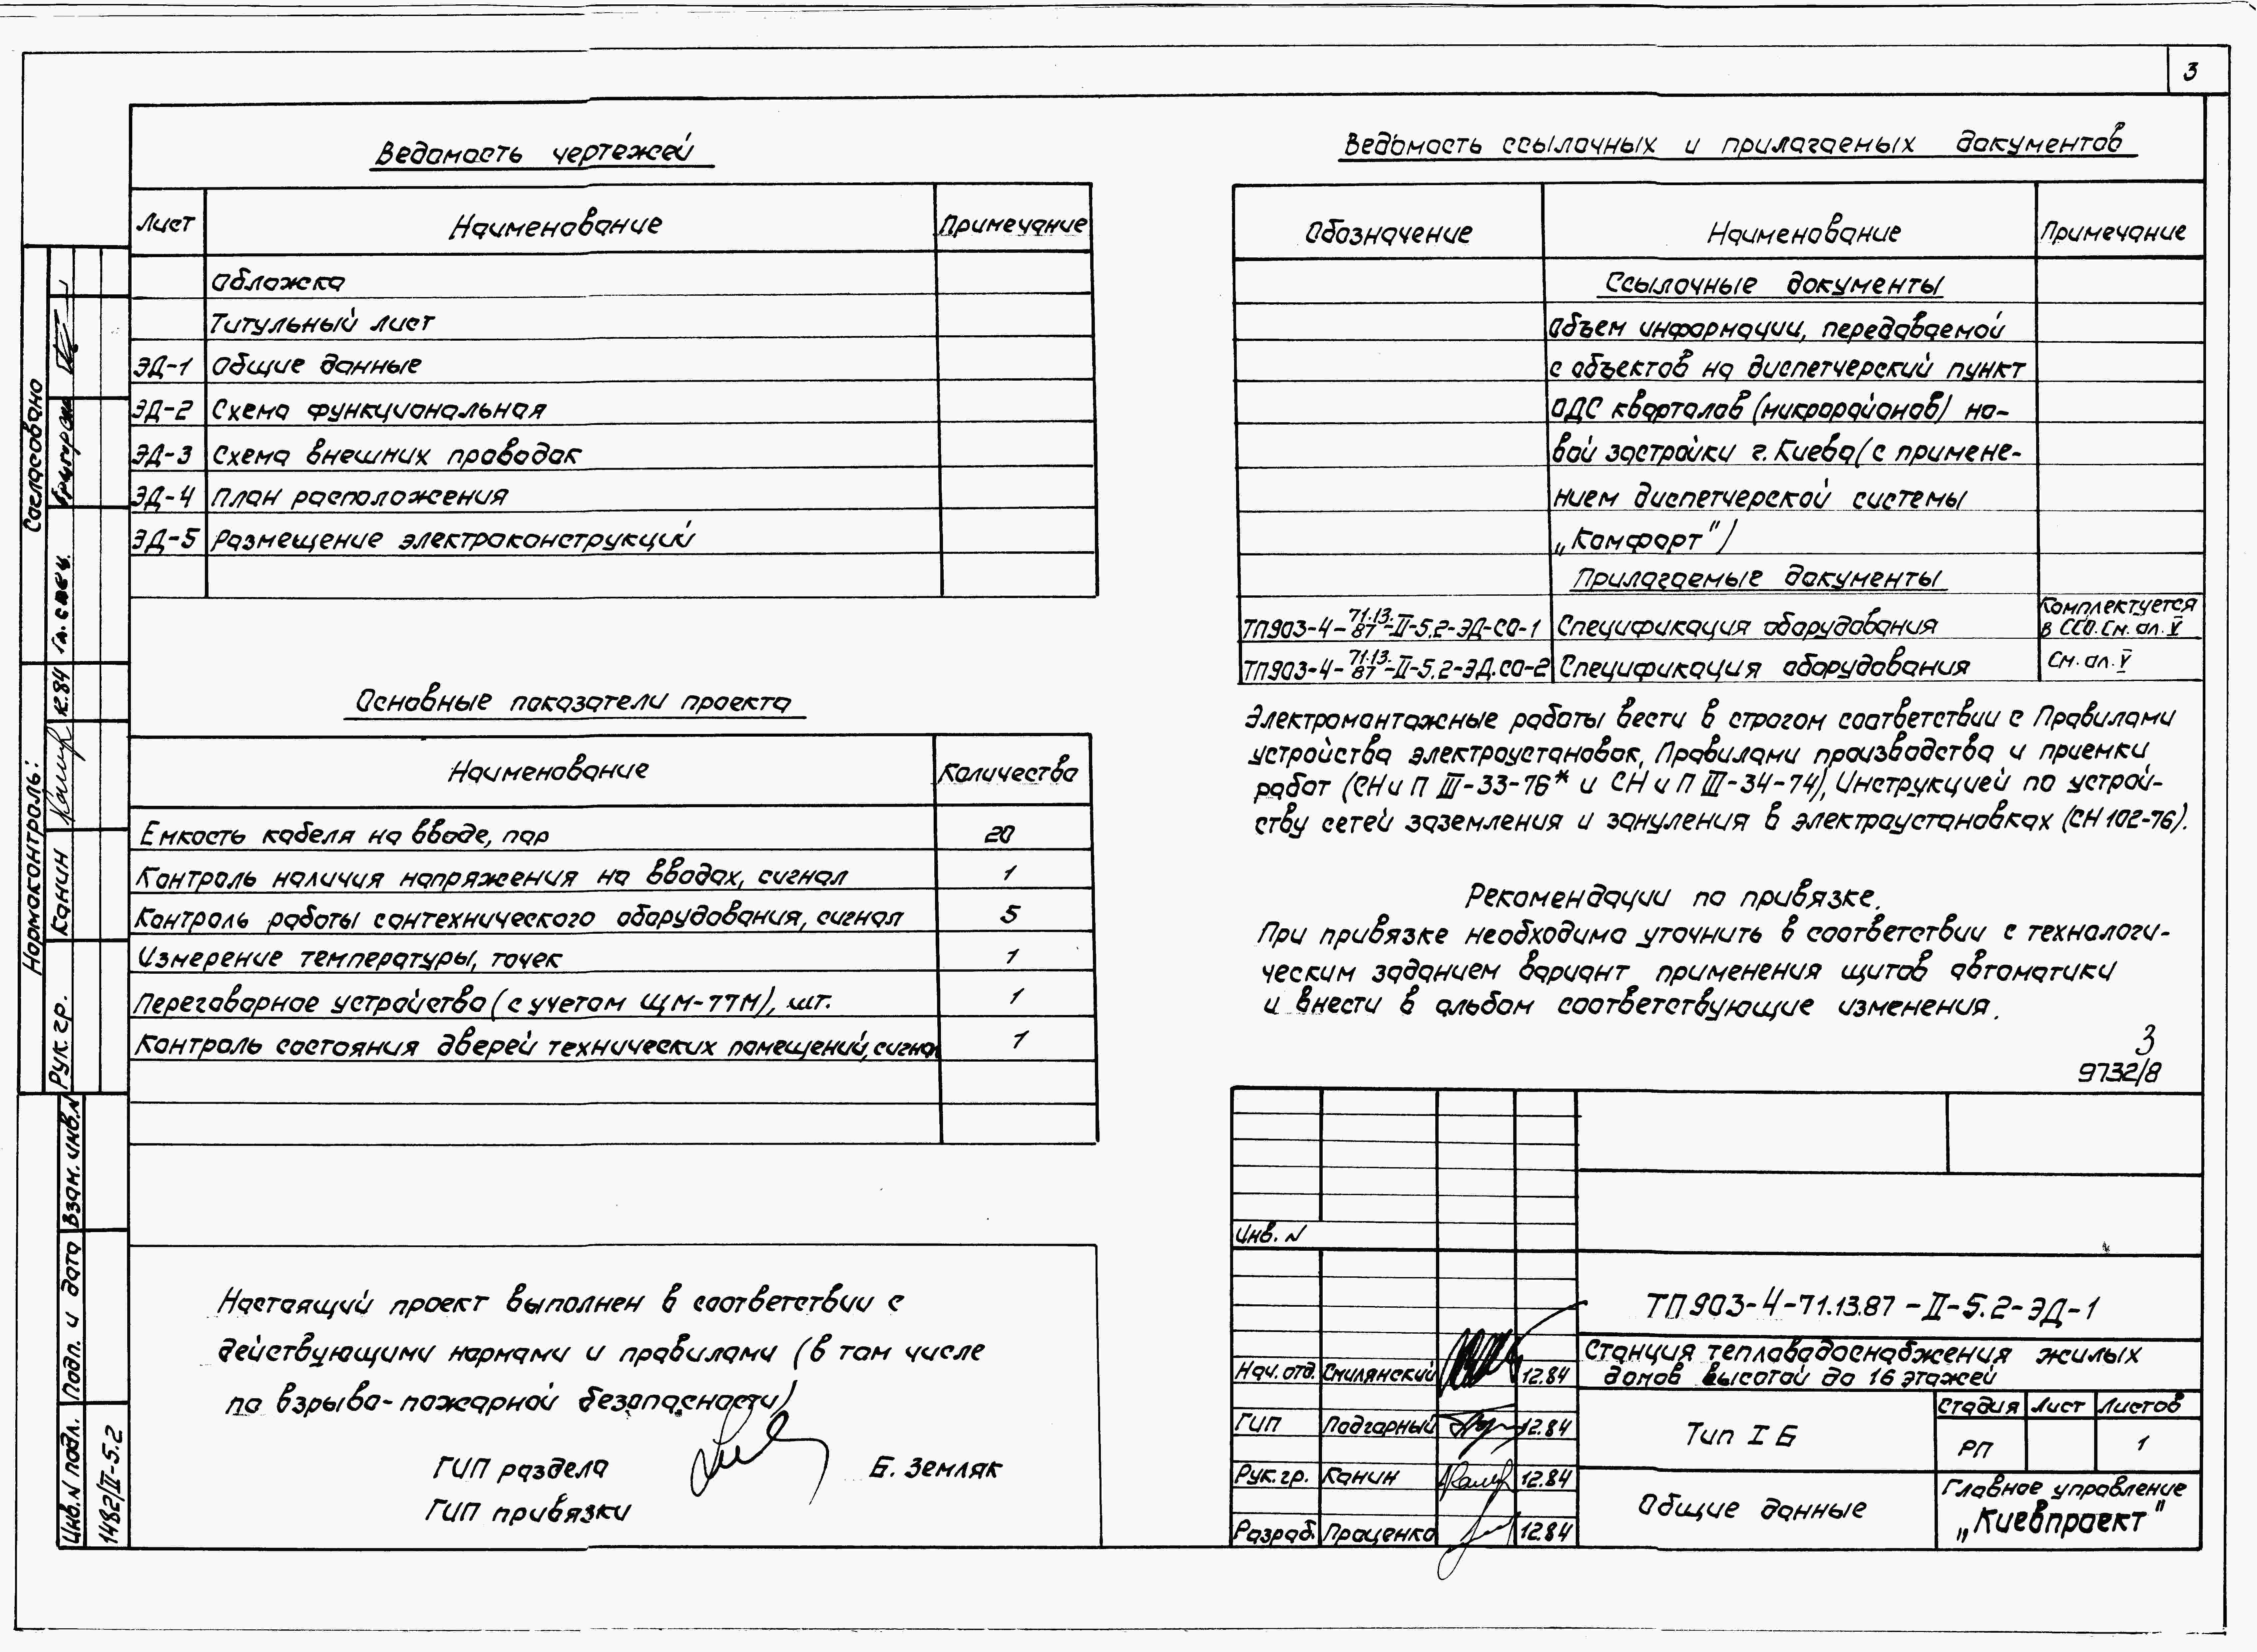 3
Ведомость чертежей
Лист Наименование Примечание
Обложка
Титульный лист
ЭД-1 Общие данные
ЭД-2 Схема функциональная
ЭД-3 Схема внешних проводок
ЭД-4 План расположения
ЭД-5 Размещение электроконструкций
Основные показатели проекта
Наименование Количество
Емкость кабеля на вводе, пар 20
Контроль наличия напряжения на вводах, сигнал 1
Контроль работы сантехнического оборудования, сигнал 5
Измерение температуры, точек 1
Переговорное устройство (с учетом ЩМ-77М), шт. 1
Контроль состояния дверей технических помещений, сигнал 1
Настоящий проект выполнен в соответствии с
действующими нормами и правилами (в том числе
по взрыво-пожарной безопасности)
ГИП раздела Б. Земляк
ГИП привязки
Ведомость ссылочных и прилагаемых документов
Обозначение Наименование Примечание
Ссылочные документы
Объем информации, передаваемой
с объектов на диспетчерский пункт
ОДС кварталов (микрорайонов) но-
вой застройки г. Киева (с примене-
нием диспетчерской системы
„Комфорт")
Прилагаемые документы
ТП903-4-71.13.87-II-5.2-ЭД-СО-1 Спецификация оборудования Комплектуется
в ССО. См. ал. V
ТП903-4-71.13.87-II-5.2-ЭД.СО-2 Спецификация оборудования См. ал. V
Электромонтажные работы вести в строгом соответствии с Правилами
устройства электроустановок, Правилами производства и приемки
работ (СНиП III-33-76* и СНиП III-34-74), Инструкцией по устрой-
ству сетей заземления и зануления в электроустановках (СН 102-76).
Рекомендации по привязке.
При привязке необходимо уточнить в соответствии с технологи-
ческим заданием вариант применения щитов автоматики
и внести в альбом соответствующие изменения.
3
9732/8
Инв. N
ТП903-4-71.13.87-II-5.2-ЭД-1
Станция тепловодоснабжения жилых
домов высотой до 16 этажей
Нач. отд. Смилянский 12.84
ГИП Подгорный 12.84
Рук. гр. Канин 12.84
Разраб. Проценко 12.84
Тип I Б
Стадия Лист Листов
РП 1
Общие данные
Главное управление
„Киевпроект"
Согласовано
Гл. спец.
Нормоконтроль:
Рук. гр. Канин 12.84
Взам. инв. N
Подп. и дата
Инв. N подл.
1482/II-5.2